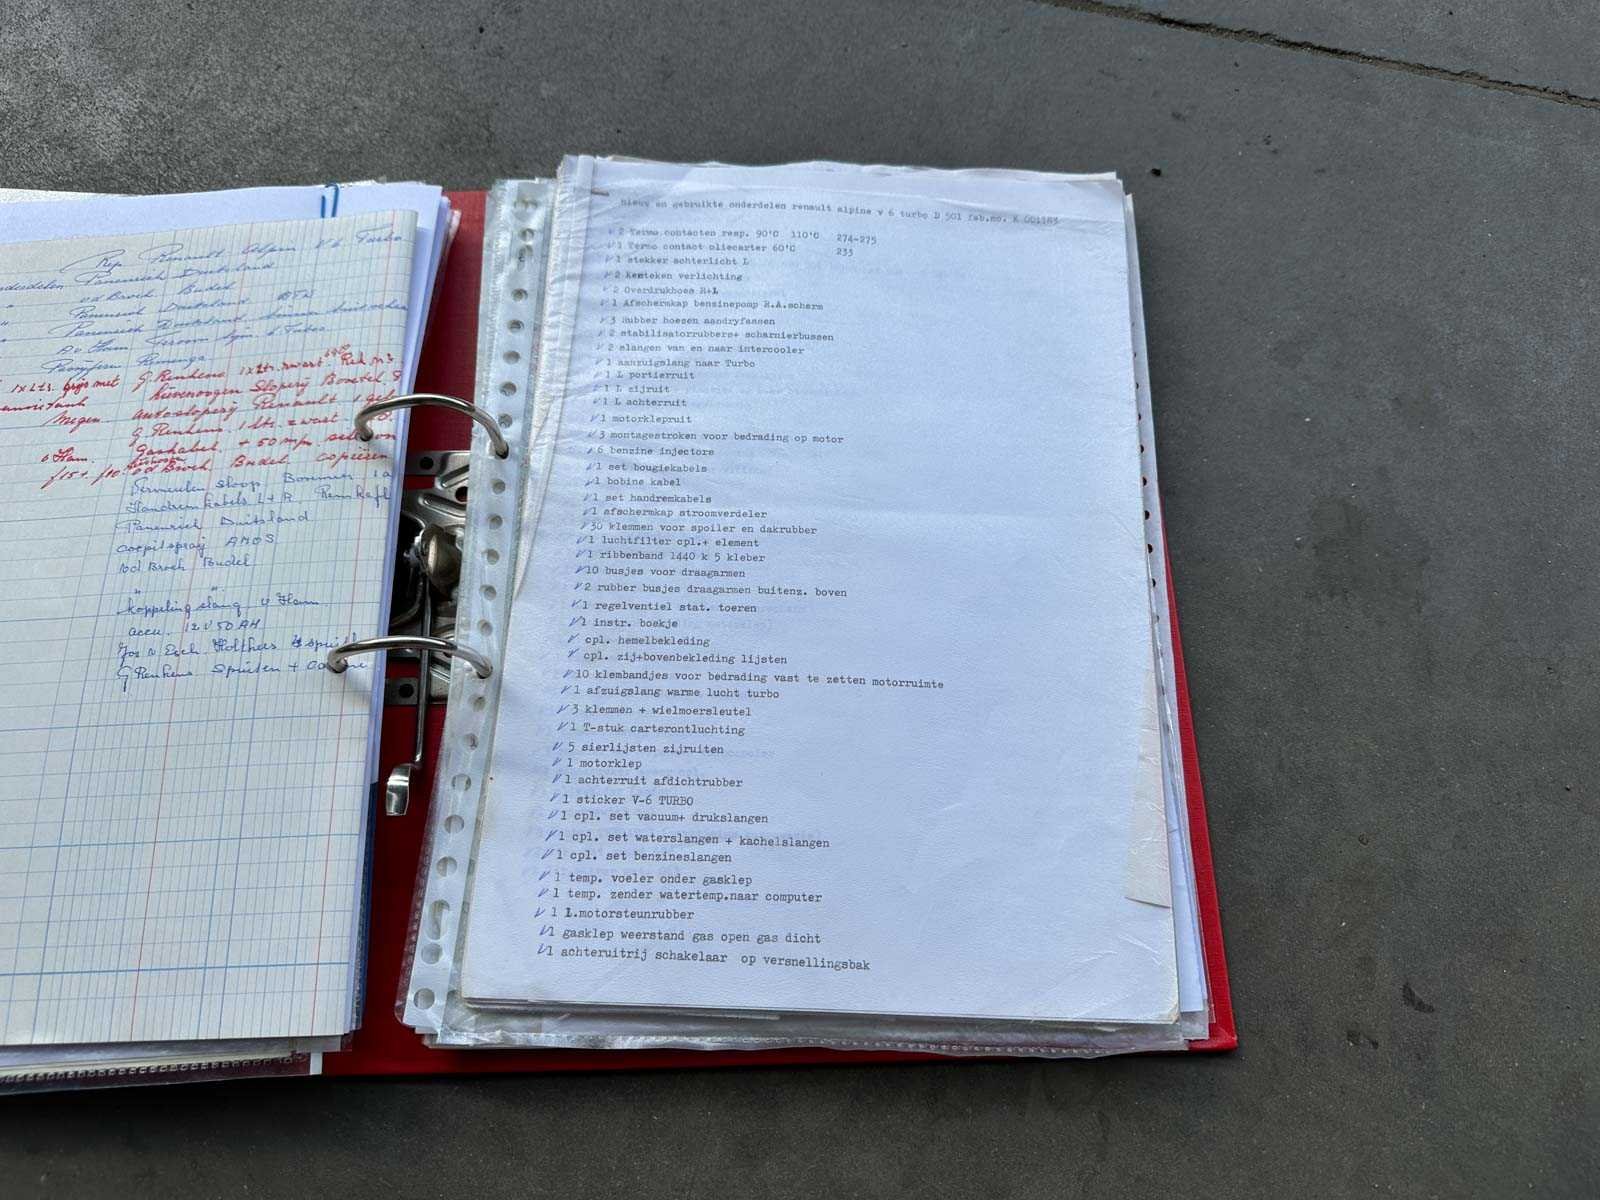 Rep. Renault Alpine V6 Turbo
Panenrich Duitsland
v d Broek Budel
Panenrich Duitsland BTW
Panenrich Duitsland
A v Ham
1x Ltr. grijs met G. Renkens 1x Ltr. zwart
Autosloperij Renault
G. Renkens 1 ltr. zwart
v Ham. Gaskabel + 50 mm
f15+ f10 v d Broek Budel copieëren
Vermeulen sloop
Handremkabels L+R
Panenrich Duitsland
cocpitspray AMOS
vd Broek Budel
" "
koppeling slang v Ham
accu. 12 V 50 AH
G Renkens Spuiten +
Nieuw en gebruikte onderdelen renault alpine v 6 turbo D 501 fab.no. K 001183
V 2 Termo contacten resp. 90°C 110°C 274-275
V 1 Termo contact oliecarter 60°C 233
V 1 stekker achterlicht L
V 2 Kenteken verlichting
V 2 Overdrukhoes R+L
V 1 Afschermkap benzinepomp R.A.scherm
V 3 Rubber hoezen aandryfassen
V 2 stabilisatorrubbers+ scharnierbussen
V 2 slangen van en naar intercooler
V 1 aanzuigslang naar Turbo
V 1 L portierruit
V 1 L zijruit
V 1 L achterruit
V 1 motorklepruit
V 3 montagestroken voor bedrading op motor
V 6 benzine injectors
V 1 set bougiekabels
V 1 bobine kabel
V 1 set handremkabels
V 1 afschermkap stroomverdeler
V 30 klemmen voor spoiler en dakrubber
V 1 luchtfilter cpl.+ element
V 1 ribbenband 1440 k 5 kleber
V 10 busjes voor draagarmen
V 2 rubber busjes draagarmen buitenz. boven
V 1 regelventiel stat. toeren
V 1 instr. boekje
V cpl. hemelbekleding
V cpl. zij+bovenbekleding lijsten
V 10 klembandjes voor bedrading vast te zetten motorruimte
V 1 afzuigslang warme lucht turbo
V 3 klemmen + wielmoersleutel
V 1 T-stuk carterontluchting
V 5 sierlijsten zijruiten
V 1 motorklep
V 1 achterruit afdichtrubber
V 1 sticker V-6 TURBO
V 1 cpl. set vacuum+ drukslangen
V 1 cpl. set waterslangen + kachelslangen
V 1 cpl. set benzineslangen
V 1 temp. voeler onder gasklep
V 1 temp. zender watertemp.naar computer
V 1 L.motorsteunrubber
V 1 gasklep weerstand gas open gas dicht
V 1 achteruitrij schakelaar op versnellingsbak